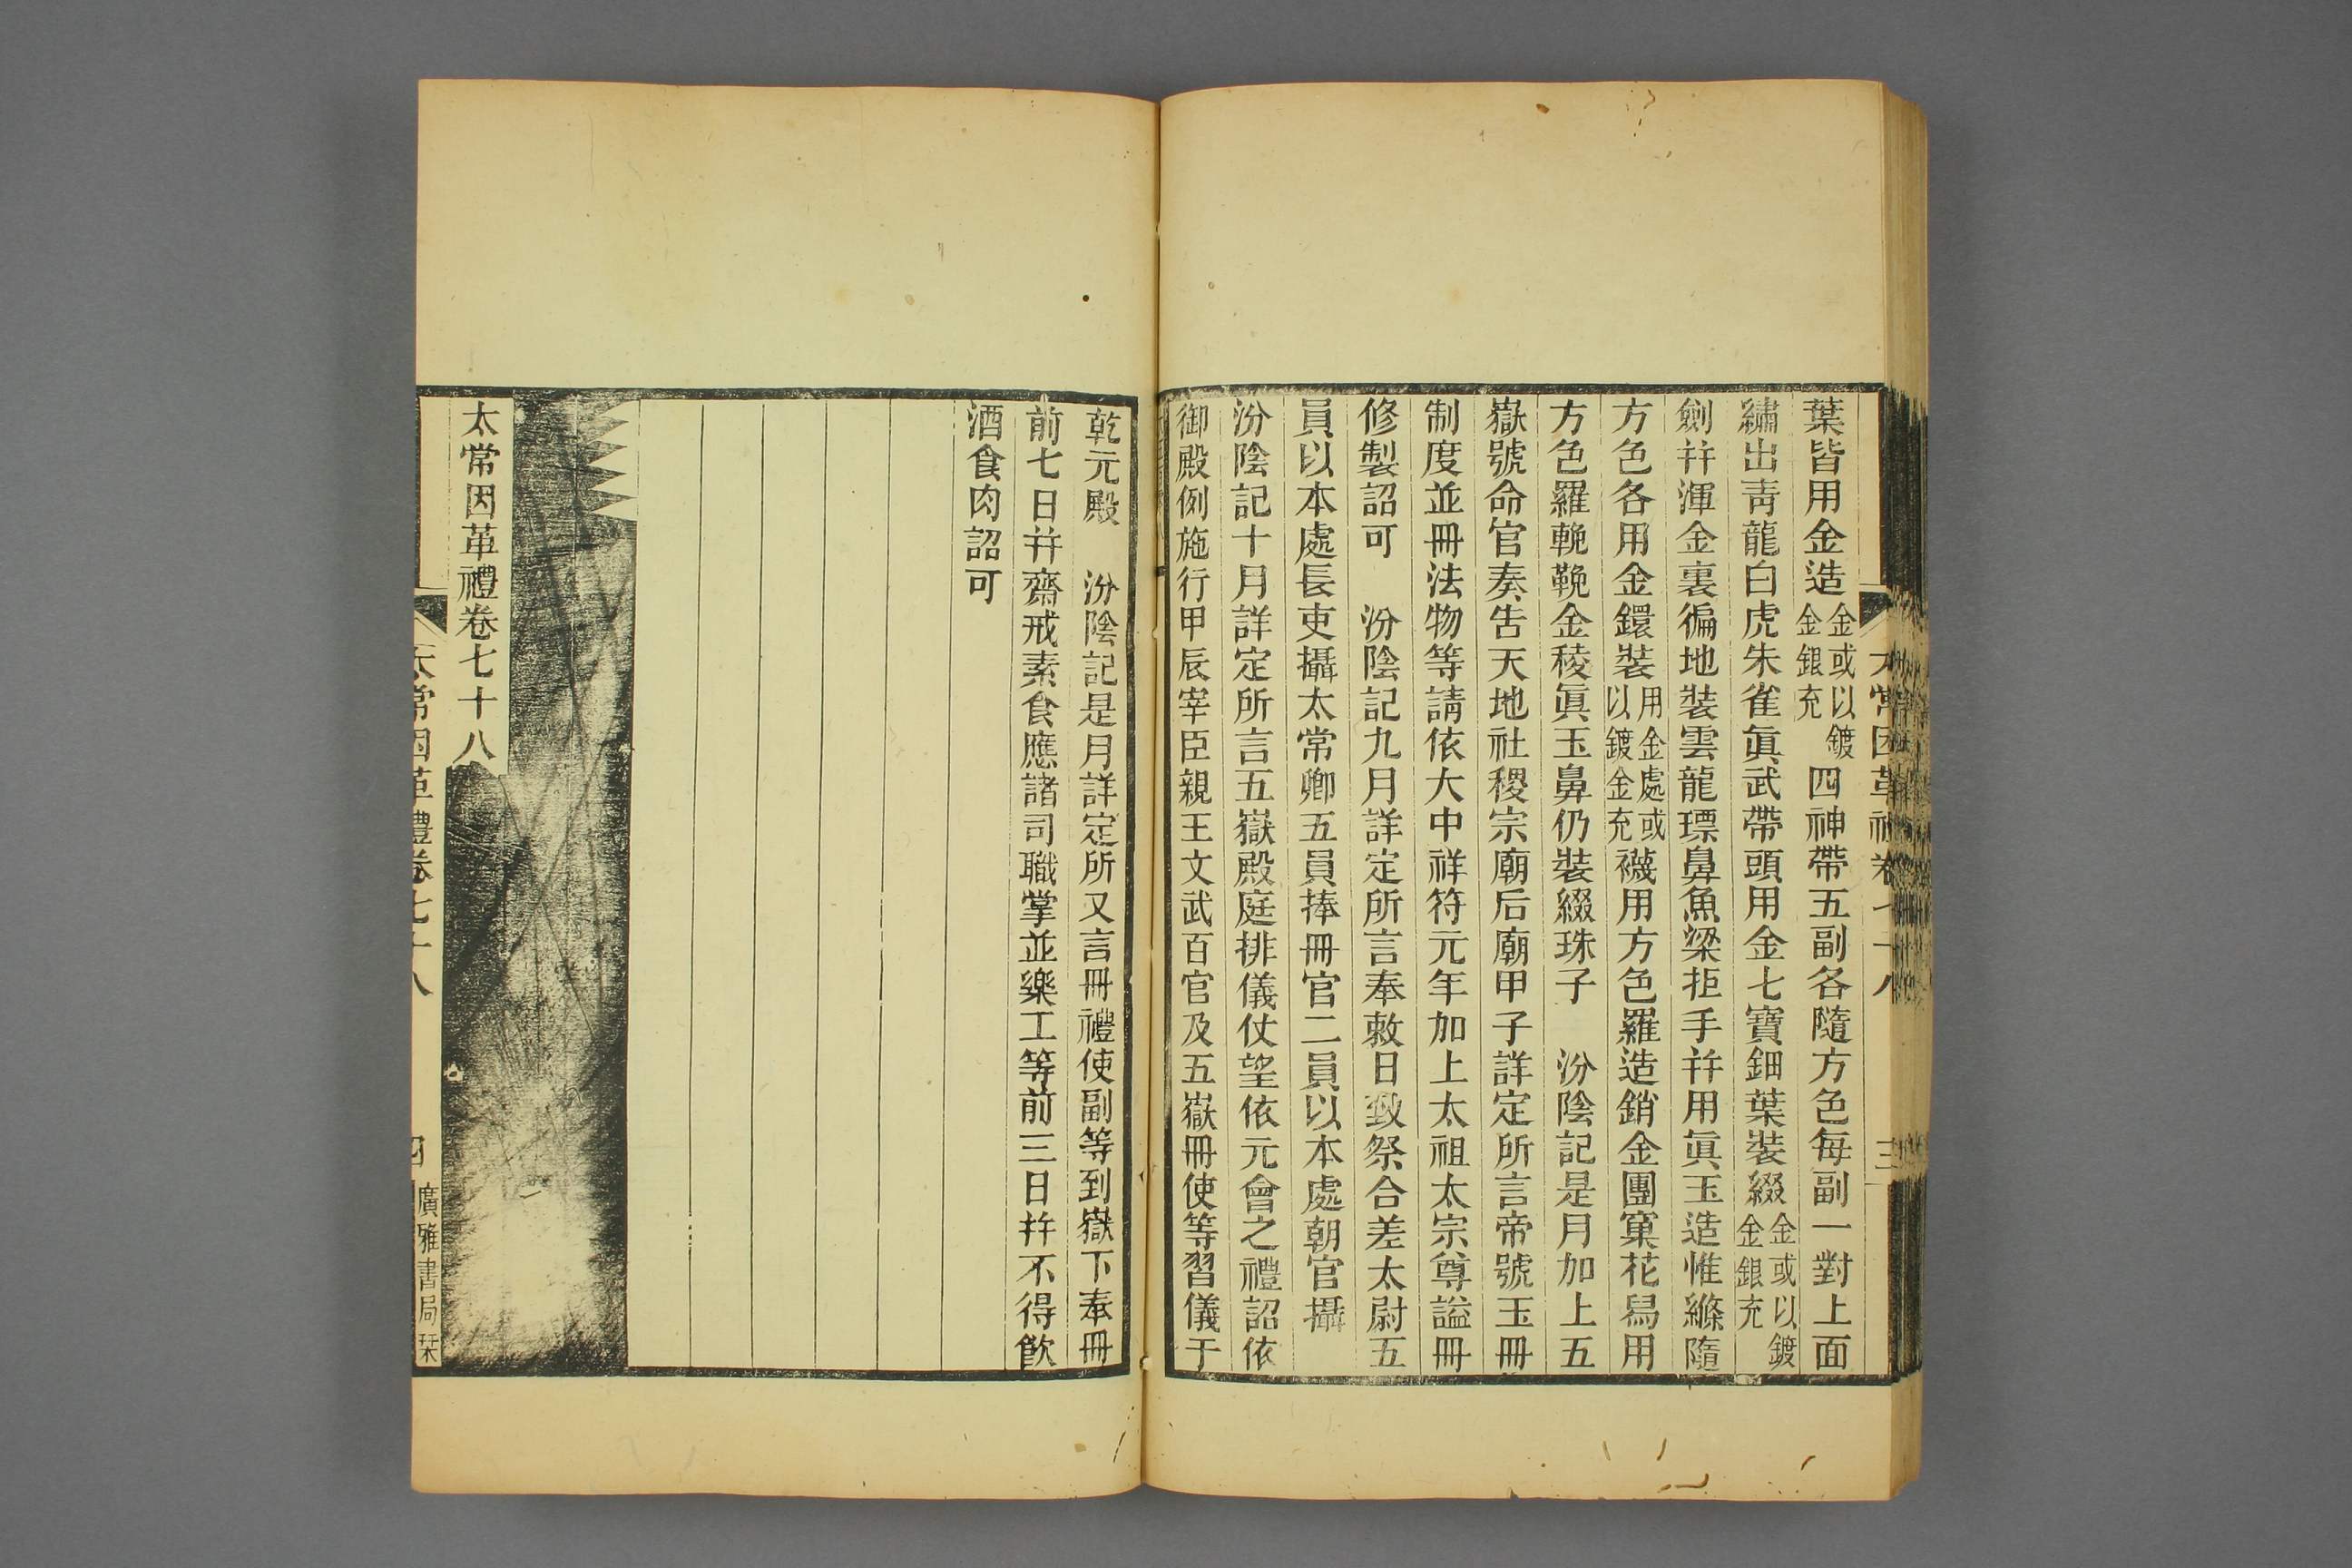 葉皆用金造金或以鍍金銀充四神帶五副各隨方色每副一對上面
繡出靑龍白虎朱雀眞武帶頭用金七寶鈿葉裝綴金或以鍍金銀充
劍幷渾金裏徧地裝雲龍瓀鼻魚梁拒手幷用眞玉造惟縧隨
方色各用金鐶裝用金處或以鍍金充襪用方色羅造銷金團窠花舄用
方色羅輓鞔金稜眞玉鼻仍裝綴珠子 汾陰記是月加上五
嶽號命官奏告天地社稷宗廟后廟甲子詳定所言帝號玉冊
制度並冊法物等請依大中祥符元年加上太祖太宗尊諡冊
修製詔可 汾陰記九月詳定所言奉敕日致祭合差太尉五
員以本處長吏攝太常卿五員捧冊官二員以本處朝官攝
汾陰記十月詳定所言五嶽殿庭排儀仗望依元會之禮詔依
御殿例施行甲辰宰臣親王文武百官及五嶽冊使等習儀于
乾元殿 汾陰記是月詳定所又言冊禮使副等到嶽下奉冊
前七日幷齋戒素食應諸司職掌並樂工等前三日幷不得飮
酒食肉詔可
太常因革禮卷七十八
太常因革禮卷七十八
四
廣雅書局栞